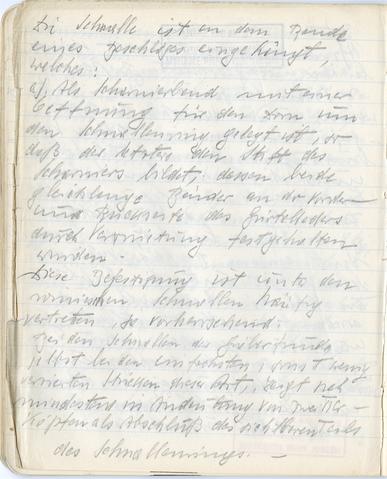 Die Schnalle ist an dem Bande
eines Beschlages eingehängt,
welches:
a) Als Scharnierband mit einer
Oeffnung für den Dorn um
den Schnallenring gelegt ist, so
daß der letztere den Stift des
Scharniers bildet; dessen beide
gleichlange Bänder an der Vorder-
und Rückseite des Gürtelleders
durch Vernietung festgehalten
wurden.
Diese Befestigung ist unter den
römischen Schnallen häufig
vertreten, so vorherrschend:
Bei den Schnallen der
selbst bei den einfachsten, sonst wenig
verzierten Stücken dieser Art, zeigt sich
mindestens in Andeutung von zwei Tier-
köpfen als Abschluß des sichtbaren teils
des Schnallenrings. —